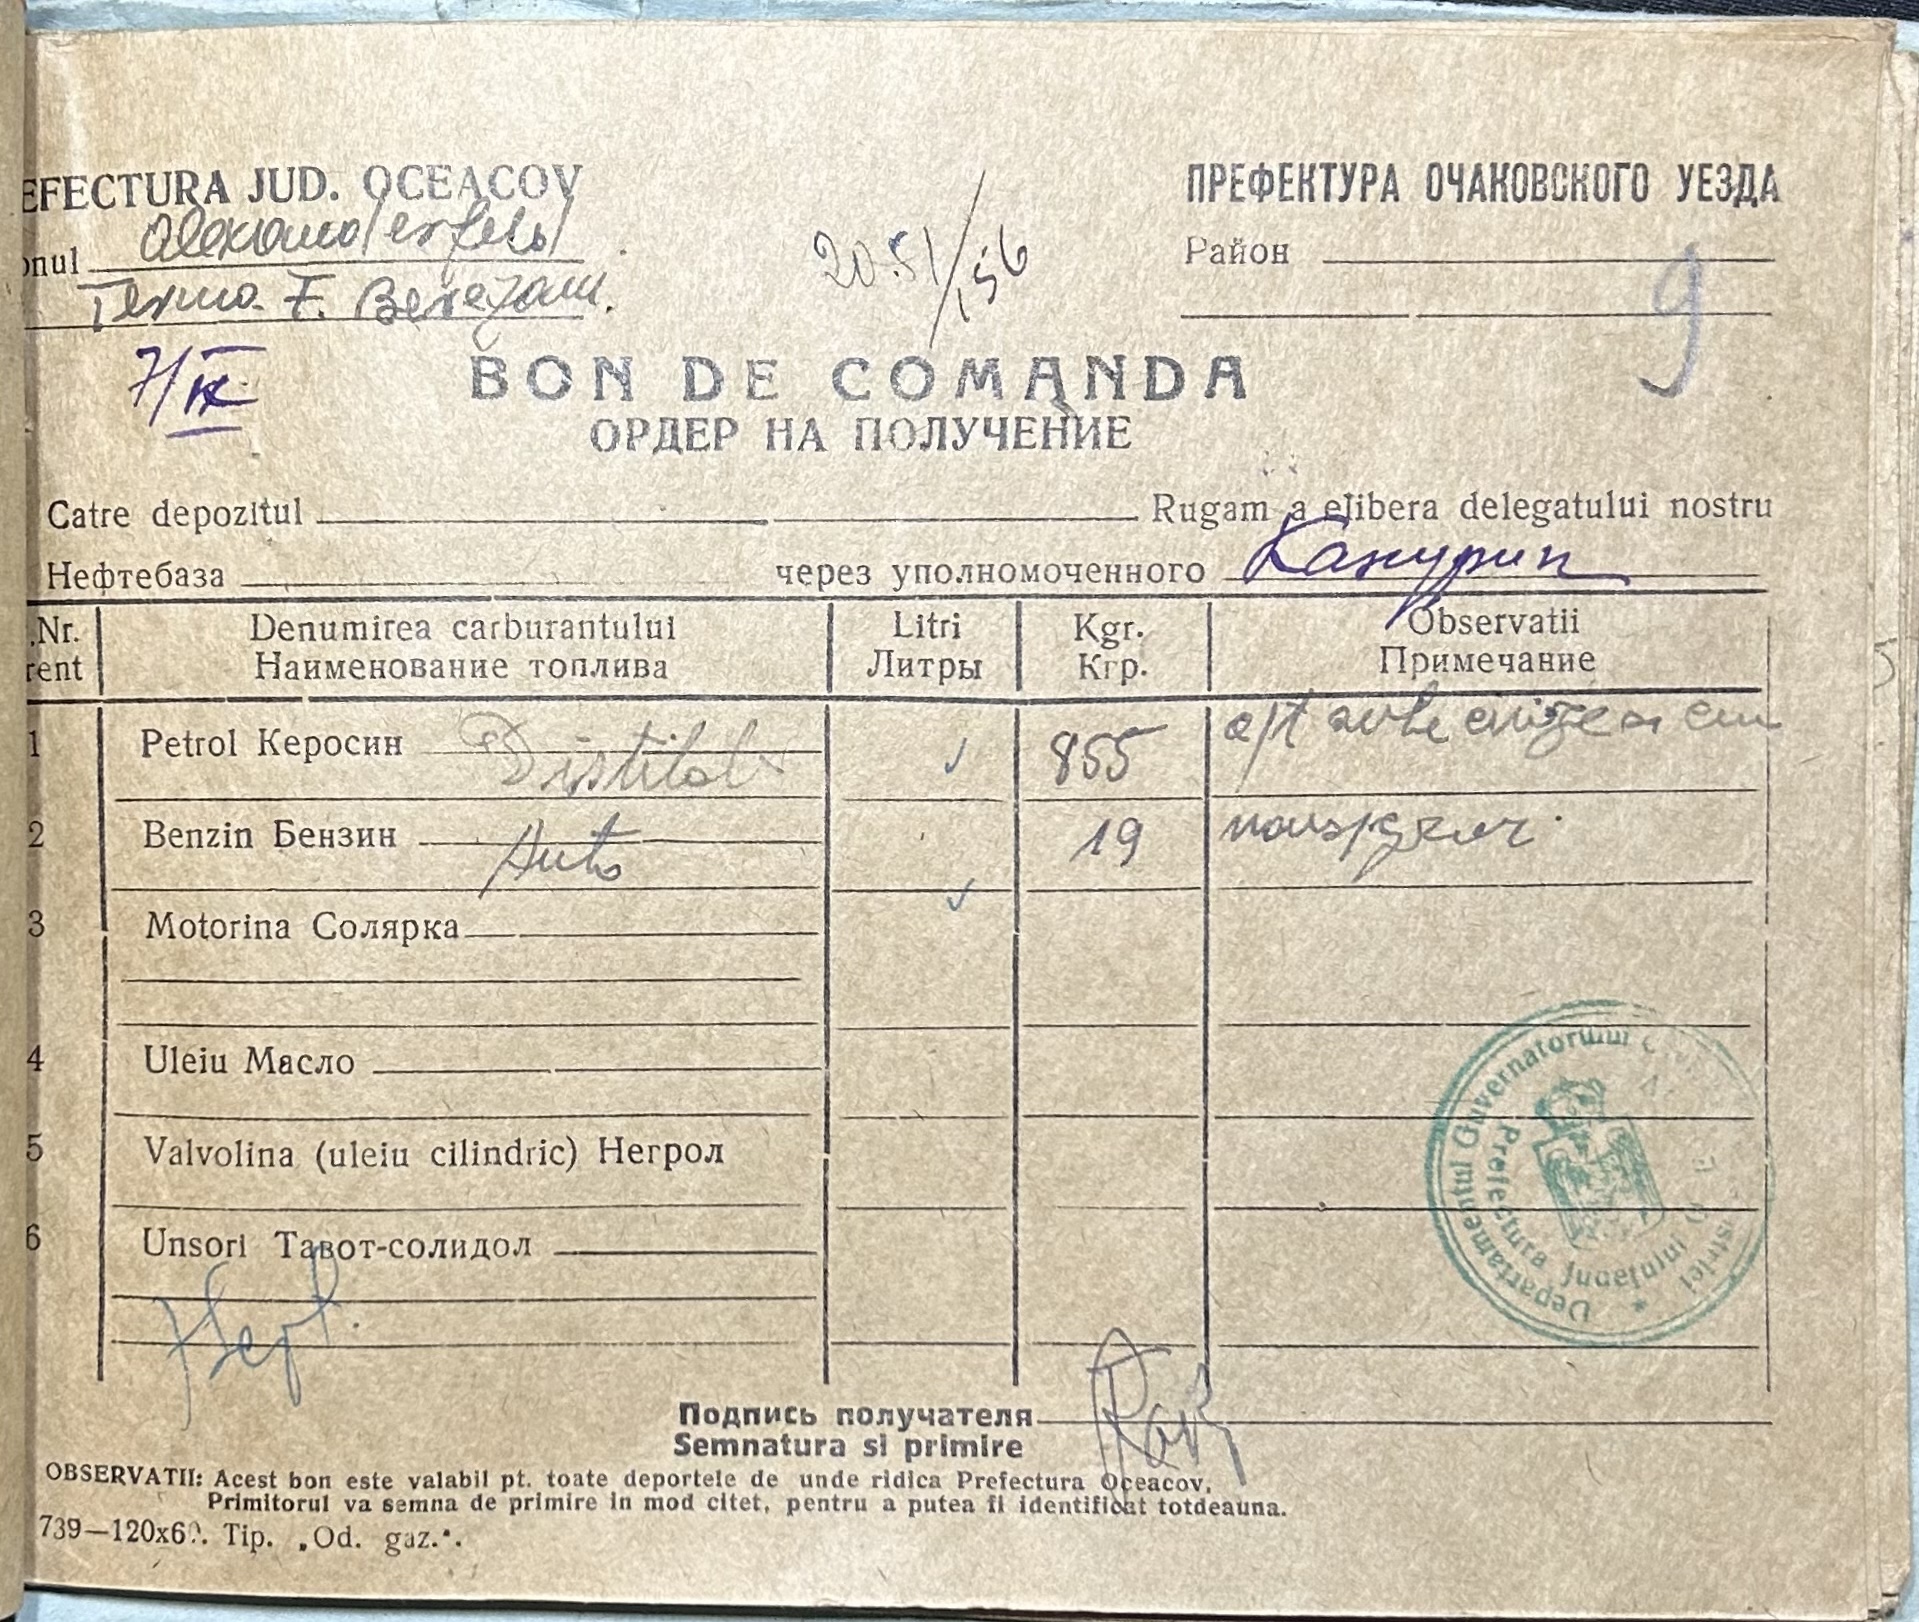 EFECTURA JUD. OCEACOV
ПРЕФЕКТУРА ОЧАКОВСКОГО УЕЗДА
onul Alexanderfeld
Район
Ferma F. Berezani.
2051/156
9
7/IX
BON DE COMANDA
ОРДЕР НА ПОЛУЧЕНИЕ
Catre depozitul Rugam a elibera delegatului nostru
Нефтебаза через уполномоченного Канурин
Nr. Denumirea carburantului Litri Kgr. Observatii
rent Наименование топлива Литры Кгр. Примечание
1 Petrol Керосин Distilat 855
2 Benzin Бензин Auto 19
3 Motorina Солярка
4 Uleiu Масло
5 Valvolina (uleiu cilindric) Негрол
6 Unsori Тавот-солидол
Departamentul Guvernatorului
Prefectura Județului
Подпись получателя
Semnatura si primire
OBSERVATII: Acest bon este valabil pt. toate deportele de unde ridica Prefectura Oceacov,
Primitorul va semna de primire in mod citet, pentru a putea fi identificat totdeauna.
739—120x60. Tip. „Od. gaz.".